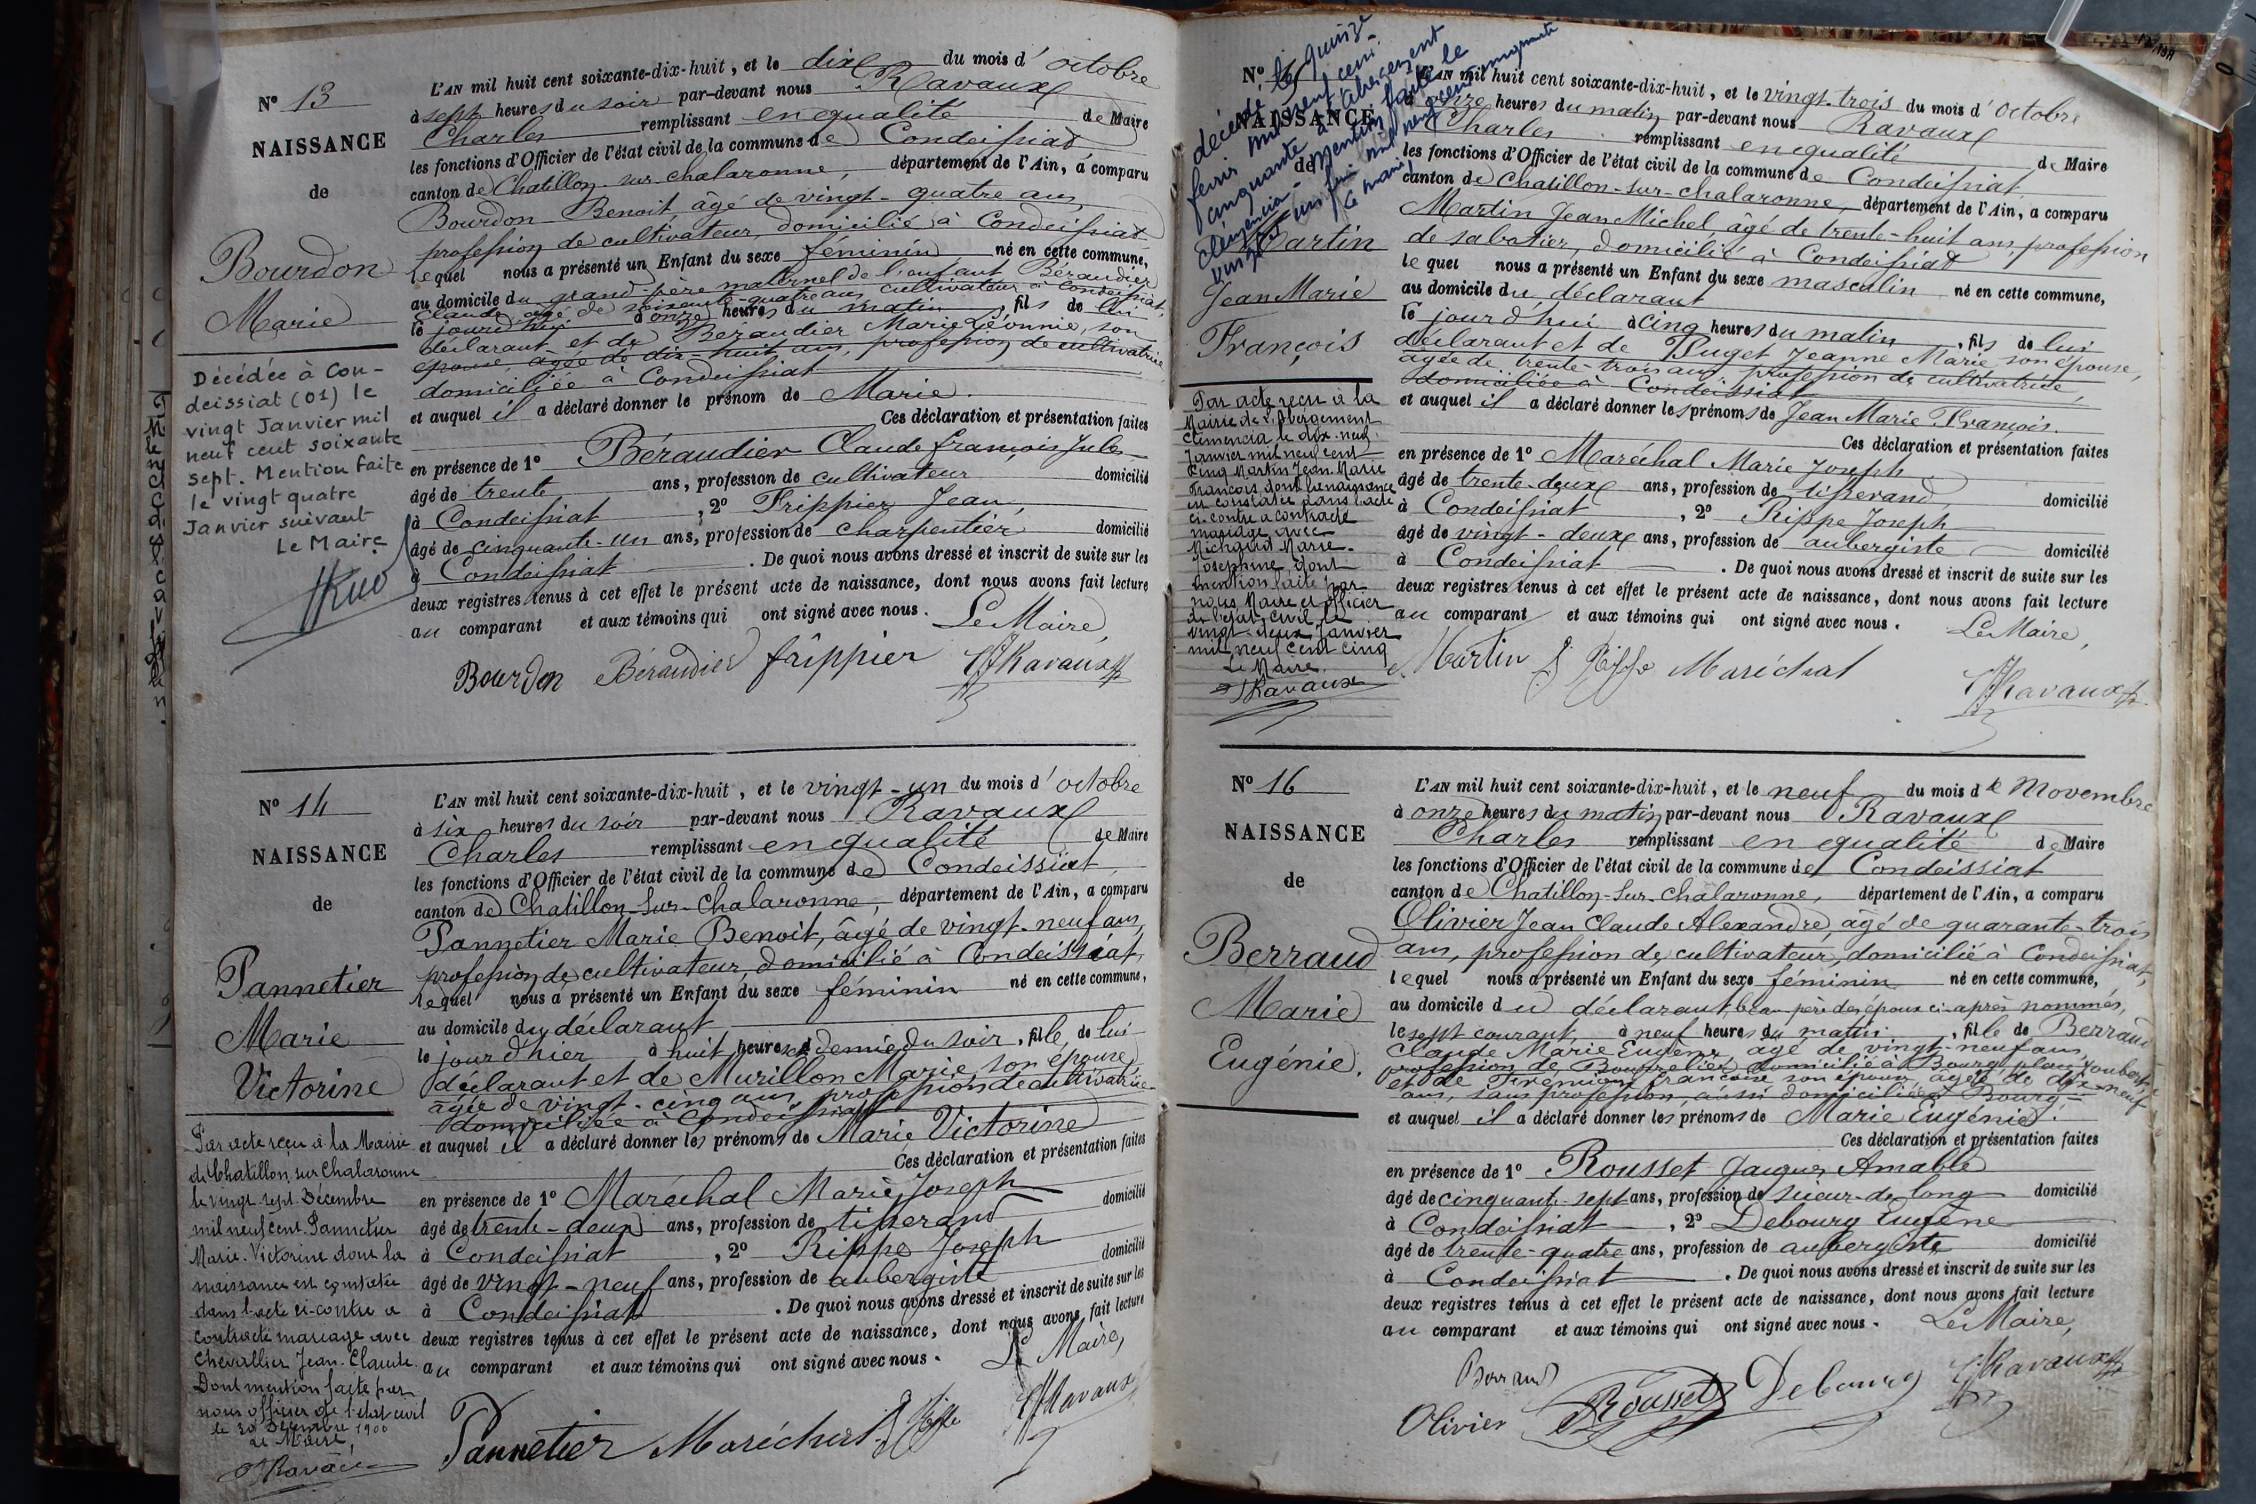 N° 13
NAISSANCE
de
Bourdon
Marie
Décédée à Con-
deissiat (01) le
vingt Janvier mil
neuf cent soixante
sept. Mention faite
le vingt quatre
Janvier suivant
Le Maire
L'AN mil huit cent soixante-dix-huit, et le dix du mois d'octobre
à sept heures du soir par-devant nous Ravaux
Charles remplissant en qualité de Maire
les fonctions d'Officier de l'état civil de la commune de Condeissiat
canton de Chatillon-sur-chalaronne, département de l'Ain, a comparu
Bourdon Benoit âgé de vingt-quatre ans,
profession de cultivateur, domicilié à Condeissiat
lequel nous a présenté un Enfant du sexe féminin né en cette commune,
au domicile du grand-père maternel de l'enfant Béraudier
Claude âgé de soixante-quatre ans cultivateur à Condeissiat,
le jourd'hui à onze heures du matin, fils de lui
déclarant et de Béraudier Marie Léonnie, son
épouse, âgée de dix-huit ans, profession de cultivatrice
domiciliée à Condeissiat
et auquel il a déclaré donner le prénom de Marie.
Ces déclaration et présentation faites
en présence de 1° Béraudier Claude françois Jules
âgé de trente ans, profession de cultivateur domicilié
à Condeissiat, 2° Frippier Jean,
âgé de cinquante-un ans, profession de charpentier domicilié
à Condeissiat. De quoi nous avons dressé et inscrit de suite sur les
deux registres tenus à cet effet le présent acte de naissance, dont nous avons fait lecture
au comparant et aux témoins qui ont signé avec nous. Le Maire,
Bourdon Béraudier frippier Ravaux
N° 14
NAISSANCE
de
Pannetier
Marie
Victorine
Par acte reçu à la Mairie
de Chatillon sur Chalaronne
le vingt-sept Décembre
mil neuf cent Pannetier
Marie-Victorine dont la
naissance est constatée
dans l'acte ci-contre a
contracté mariage avec
Chevallier Jean-Claude.
Dont mention faite par
nous officier de l'état civil
le 30 Décembre 1900
Le Maire,
Ravaux
L'AN mil huit cent soixante-dix-huit, et le vingt-un du mois d'octobre
à six heures du soir par-devant nous Ravaux
Charles remplissant en qualité de Maire
les fonctions d'Officier de l'état civil de la commune de Condeissiat,
canton de Chatillon-sur-Chalaronne, département de l'Ain, a comparu
Pannetier Marie Benoit, âgé de vingt-neuf ans,
profession de cultivateur, domicilié à Condeissiat,
lequel nous a présenté un Enfant du sexe féminin né en cette commune,
au domicile du déclarant
le jourd'hier à huit heures et demie du soir, fille de lui
déclarant et de Murillon Marie, son épouse,
âgée de vingt-cinq ans, profession de cultivatrice
domiciliée à Condeissiat
et auquel il a déclaré donner les prénoms de Marie Victorine
Ces déclaration et présentation faites
en présence de 1° Maréchal Marie Joseph
âgé de trente-deux ans, profession de tisserand domicilié
à Condeissiat, 2° Rippe Joseph
âgé de vingt-neuf ans, profession de aubergiste domicilié
à Condeissiat. De quoi nous avons dressé et inscrit de suite sur les
deux registres tenus à cet effet le présent acte de naissance, dont nous avons fait lecture
au comparant et aux témoins qui ont signé avec nous. Le Maire,
Pannetier Maréchal J Rippe Ravaux
N°
NAISSANCE
de
Martin
Jean Marie
François
décédé le quinze
mil neuf cent
cinquante à l'Abergement
Clémencia. Mention faite le
Le maire
Par acte reçu à la
Mairie de l'Abergement
Clémencia le dix-neuf
Janvier mil neuf cent
cinq Martin Jean Marie
François dont la naissance
est constatée dans l'acte
ci-contre a contracté
mariage avec
Michaud Marie-
Josephine, dont
mention faite par
nous Maire et officier
de l'état civil le
vingt-deux Janvier
mil neuf cent cinq
Le Maire.
Ravaux
L'AN mil huit cent soixante-dix-huit, et le vingt-trois du mois d'octobre
à onze heures du matin par-devant nous Ravaux
Charles remplissant en qualité de Maire
les fonctions d'Officier de l'état civil de la commune de Condeissiat
canton de Chatillon-sur-chalaronne, département de l'Ain, a comparu
Martin Jean Michel, âgé de trente-huit ans, profession
de sabotier, domicilié à Condeissiat
lequel nous a présenté un Enfant du sexe masculin né en cette commune,
au domicile du déclarant
le jourd'hui à cinq heures du matin, fils de lui
déclarant et de Puget Jeanne Marie son épouse,
âgée de trente-trois ans profession de cultivatrice,
domiciliée à Condeissiat
et auquel il a déclaré donner les prénoms de Jean Marie François.
Ces déclaration et présentation faites
en présence de 1° Maréchal Marie Joseph
âgé de trente-deux ans, profession de tisserand domicilié
à Condeissiat, 2° Rippe Joseph
âgé de vingt-deux ans, profession de aubergiste domicilié
à Condeissiat. De quoi nous avons dressé et inscrit de suite sur les
deux registres tenus à cet effet le présent acte de naissance, dont nous avons fait lecture
au comparant et aux témoins qui ont signé avec nous. Le Maire,
Martin J Rippe Maréchal Ravaux
N° 16
NAISSANCE
de
Berraud
Marie
Eugénie.
L'AN mil huit cent soixante-dix-huit, et le neuf du mois de Novembre
à onze heures du matin par-devant nous Ravaux
Charles remplissant en qualité de Maire
les fonctions d'Officier de l'état civil de la commune de Condeissiat
canton de Chatillon-sur-chalaronne, département de l'Ain, a comparu
Olivier Jean Claude Alexandre, âgé de quarante-trois
ans, profession de cultivateur, domicilié à Condeissiat,
lequel nous a présenté un Enfant du sexe féminin né en cette commune,
au domicile du déclarant, beau père des époux ci-après nommés,
le sept courant, à neuf heures du matin, fille de Berraud
Claude Marie Eugène, âgé de vingt-neuf ans,
profession de Bourrelier domicilié à Bourg, place Joubert,
et de Fremion francoise son épouse, âgée de dix-neuf
ans, sans profession, aussi domiciliée à Bourg
et auquel il a déclaré donner les prénoms de Marie Eugénie.
Ces déclaration et présentation faites
en présence de 1° Rousset Jacques Amable
âgé de cinquante-sept ans, profession de scieur-de-long domicilié
à Condeissiat, 2° Debourg Eugène
âgé de trente-quatre ans, profession de aubergiste domicilié
à Condeissiat. De quoi nous avons dressé et inscrit de suite sur les
deux registres tenus à cet effet le présent acte de naissance, dont nous avons fait lecture
au comparant et aux témoins qui ont signé avec nous. Le Maire,
Berraud
Olivier Rousset Debourg Ravaux